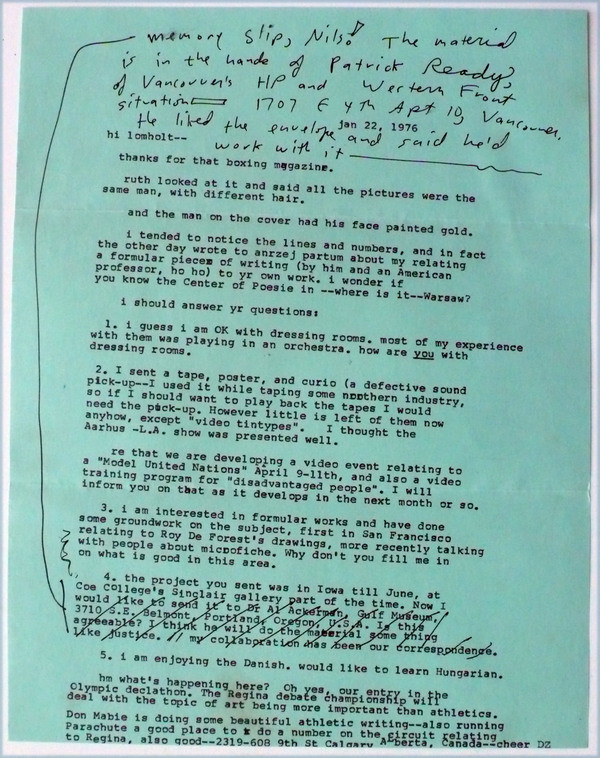 memory slip, Nils! The material
is in the hands of Patrick Ready,
of Vancouver's HP and Western Front
situation 1707 E 4th Apt 10, Vancouver.
He liked the envelope and said he'd
work with it
jan 22, 1976
hi lomholt--
thanks for that boxing magazine.
ruth looked at it and said all the pictures were the
same man, with different hair.
and the man on the cover had his face painted gold.
i tended to notice the lines and numbers, and in fact
the other day wrote to anrzej partum about my relating
a formular pieces of writing (by him and an American
professor, ho ho) to yr own work. i wonder if
you know the Center of Poesie in --where is it--Warsaw?
i should answer yr questions:
1. i guess i am OK with dressing rooms. most of my experience
with them was playing in an orchestra. how are you with
dressing rooms.
2. I sent a tape, poster, and curio (a defective sound
pick-up--I used it while taping some northern industry,
so if I should want to play back the tapes I would
need the pick-up. However little is left of them now
anyhow, except "video tintypes". I thought the
Aarhus -L.A. show was presented well.
re that we are developing a video event relating to
a "Model United Nations" April 9-11th, and also a video
training program for "disadvantaged people". I will
inform you on that as it develops in the next month or so.
3. i am interested in formular works and have done
some groundwork on the subject, first in San Francisco
relating to Roy De Forest's drawings, more recently talking
with people about microfiche. Why don't you fill me in
on what is good in this area.
4. the project you sent was in Iowa till June, at
Coe College's Sinclair gallery part of the time. Now I
would like to send it to Dr Al Ackerman, Gulf Museum,
3710 S.E. Belmont, Portland, Oregon, U.S.A. Is this
agreeable? I think he will do the material some thing
like justice. // my collabpration has been our correspondence.
5. i am enjoying the Danish. would like to learn Hungarian.
hm what's happening here? Oh yes, our entry in the
Olympic declathon. The Regina debate championship will
deal with the topic of art being more important than athletics.
Don Mabie is doing some beautiful athletic writing--also running
Parachute a good place to do a number on the circuit relating
to Regina, also good--2319-608 9th St Calgary Alberta, Canada--cheer DZ